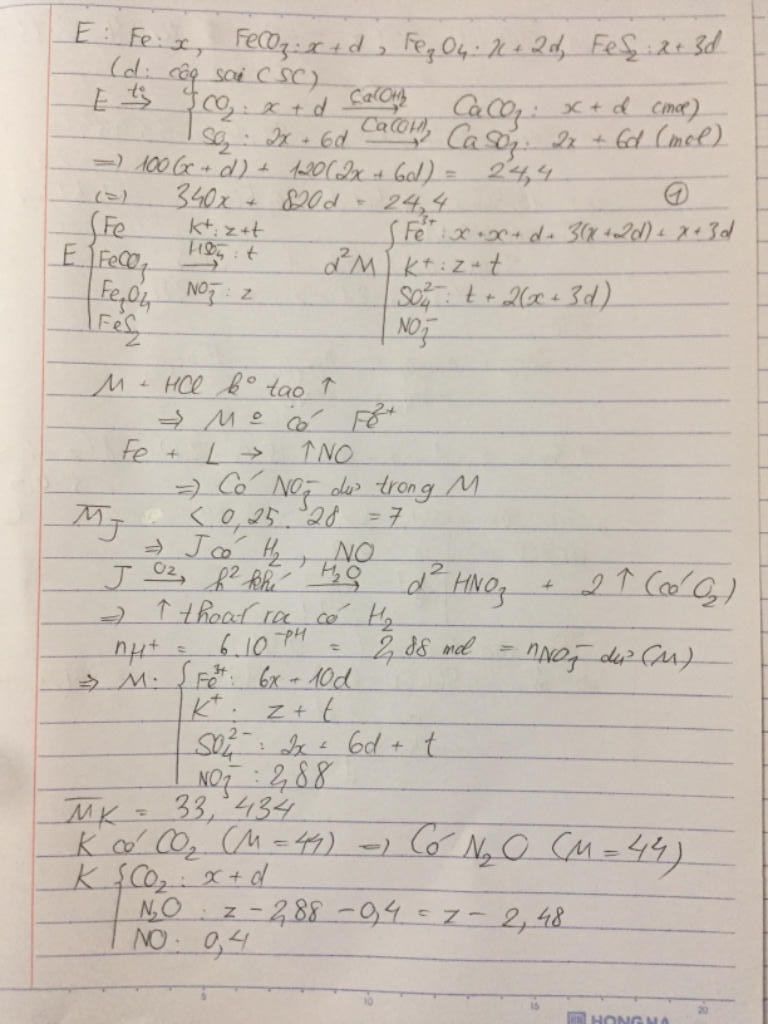 E: Fe: x, FeCO₃: x + d, Fe₃O₄: x + 2d, FeS₂: x + 3d
(d: công sai CSC)
E —t°→ { CO₂: x + d —Ca(OH)₂→ CaCO₃: x + d (mol)
SO₂: 2x + 6d —Ca(OH)₂→ CaSO₃: 2x + 6d (mol)
=> 100(x + d) + 120(2x + 6d) = 24,4
(=) 340x + 820d = 24,4 ①
E { Fe K⁺: z + t d² M { Fe³⁺: x + x + d + 3(x + 2d) + x + 3d
FeCO₃ —HSO₄⁻: t→ K⁺: z + t
Fe₃O₄ NO₃⁻: z SO₄²⁻: t + 2(x + 3d)
FeS₂ NO₃⁻
M + HCl ko tạo ↑
=> M ko có Fe²⁺
Fe + L → ↑NO
=> Có NO₃⁻ dư trong M
M̅_J < 0,25 . 28 = 7
=> J có H₂, NO
J —O₂→ h² khí —H₂O→ d² HNO₃ + 2 ↑ (có O₂)
=> ↑ thoát ra có H₂
nH⁺ = 6.10^-pH = 2,88 mol = nNO₃⁻ dư (M)
=> M: { Fe³⁺: 6x + 10d
K⁺: z + t
SO₄²⁻: 2x + 6d + t
NO₃⁻: 2,88
M̅_K = 33,434
K có CO₂ (M = 44) => Có N₂O (M = 44)
K { CO₂: x + d
N₂O: z - 2,88 - 0,4 = z - 2,48
NO: 0,4
5 10 15 20